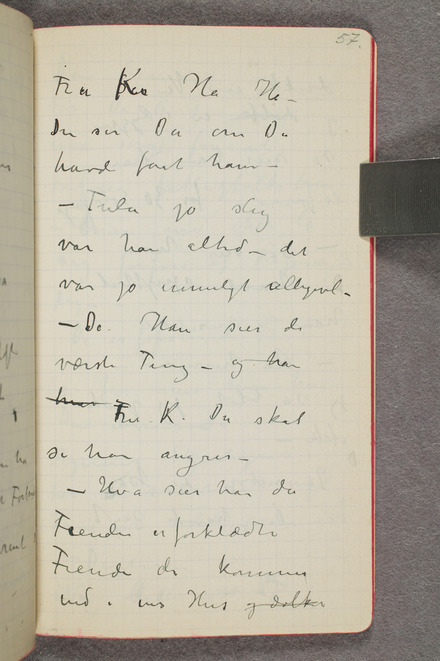 57.
Fru Ka Ha He –
Du ser Du om Du
havde faat ham –
– Tula jo slig
var han altid – det
var jo umuligt alligevel –
– De. Han sier de
værste Ting – og han
han Fru K. Du skal
se han angrer –
– Hva sier han da
Fiender er forklædte
Fiender de kommer
ind i ens Hus